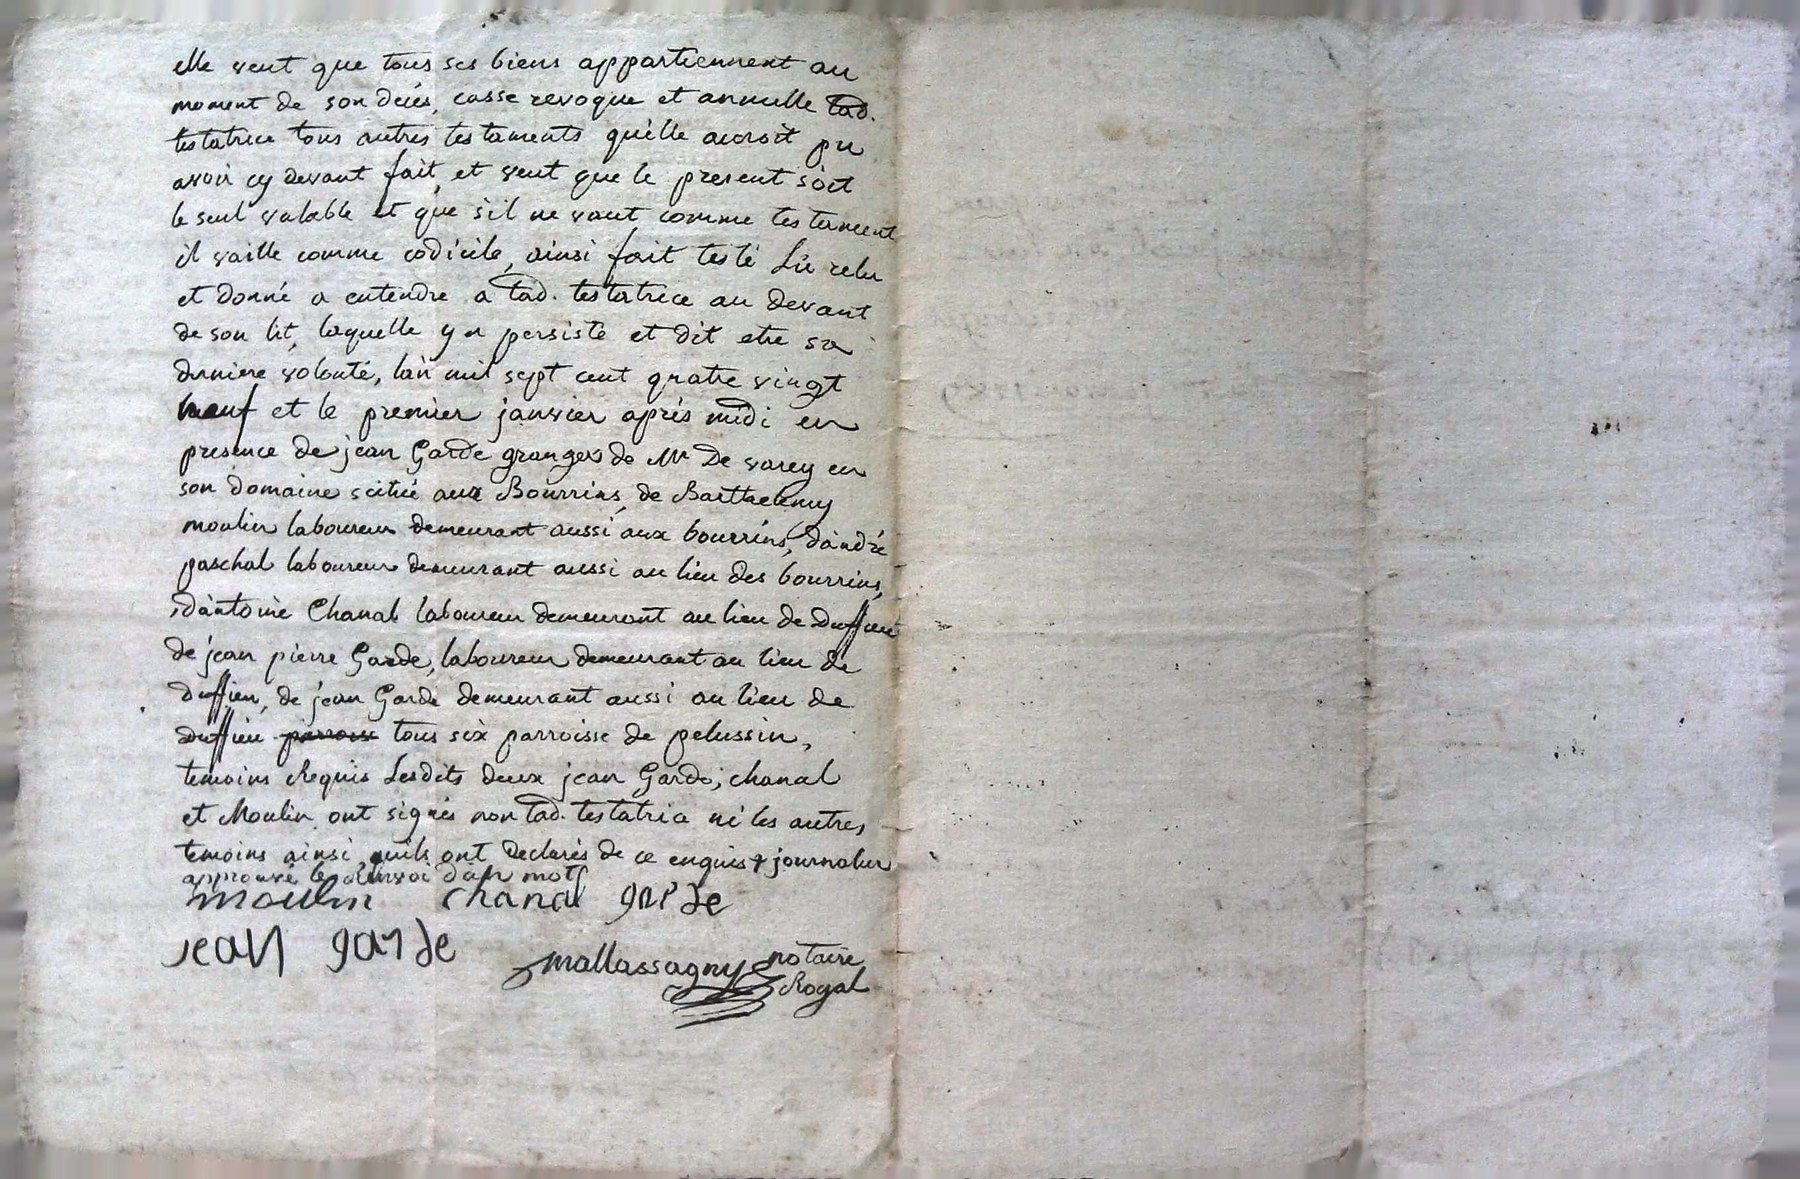 elle veut que tous ses biens appartiennent au
moment de son decés, casse revoque et annulle lad.
testatrice tous autres testaments quelle auroit pu
avoir cy devant fait, et veut que le present soit
le seul valable et que s'il ne vaut comme testament
il vaille comme codicile, ainsi fait testé Lu relu
et donné a entendre a lad. testatrice au devant
de son lit, laquelle y a persisté et dit etre sa
derniere volonté, l'an mil sept cent quatre vingt
neuf et le premier janvier aprés midi en
presence de jean Garde granger de Mr De varey en
son domaine scitué aux Bourrins, de Barthelemy
moulin laboureur demeurant aussi aux bourrins, d'andré
paschal laboureur demeurant aussi au lieu des bourrins,
d'antoine Chanal laboureur demeurant au lieu de Duffieu
de jean pierre Garde, laboureur demeurant au lieu de
duffieu, de jean Garde demeurant aussi au lieu de
duffieu parroisse tous six parroisse de pelussin,
temoins Requis Lesdits deux jean Garde, chanal
et Moulin ont signés non lad. testatrice ni les autres
temoins ainsi quils ont declarés de ce enquis + journalier
approuvé le renvoi d'un mot
moulin chanal garde
jean garde
mallassagny notaire
Royal